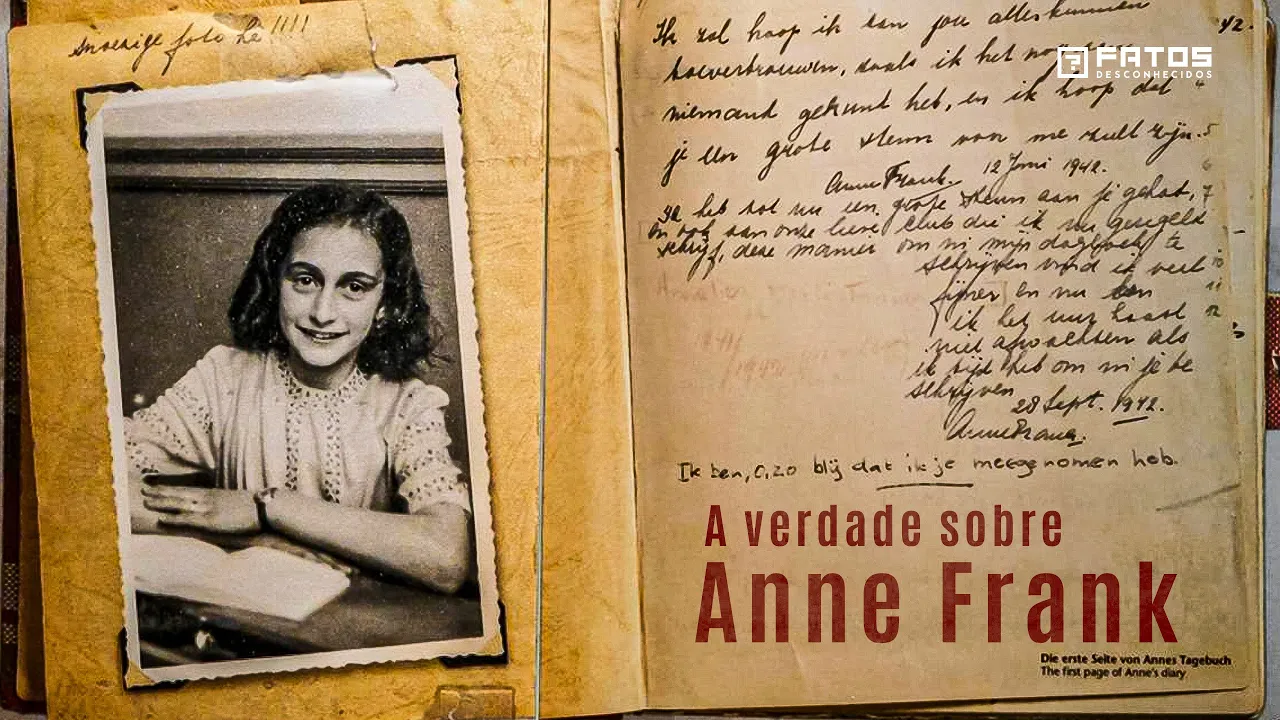 snoezige foto hè!!!!
Ik zal hoop ik aan jou alles kunnen 42.
toevertrouwen, zoals ik het nog
niemand gekund heb, en ik hoop dat
je een grote steun voor me zult zijn. 5
Anne Frank. 12 Juni 1942. 6
Ik heb tot nu een grote steun aan je gehad, 7
en ook aan onze lieve club die ik nu geregeld
schrijf, deze manier om in mijn dagboek te
schrijven vind ik veel 10
fijner en nu kan 11
ik het uur haast 12
niet afwachten als
ik tijd heb om in je te
schrijven
28 Sept. 1942.
Anne Frank.
Ik ben, o, zo blij dat ik je meegenomen heb.
FATOS
DESCONHECIDOS
A verdade sobre
Anne Frank
Die erste Seite von Annes Tagebuch
The first page of Anne's diary